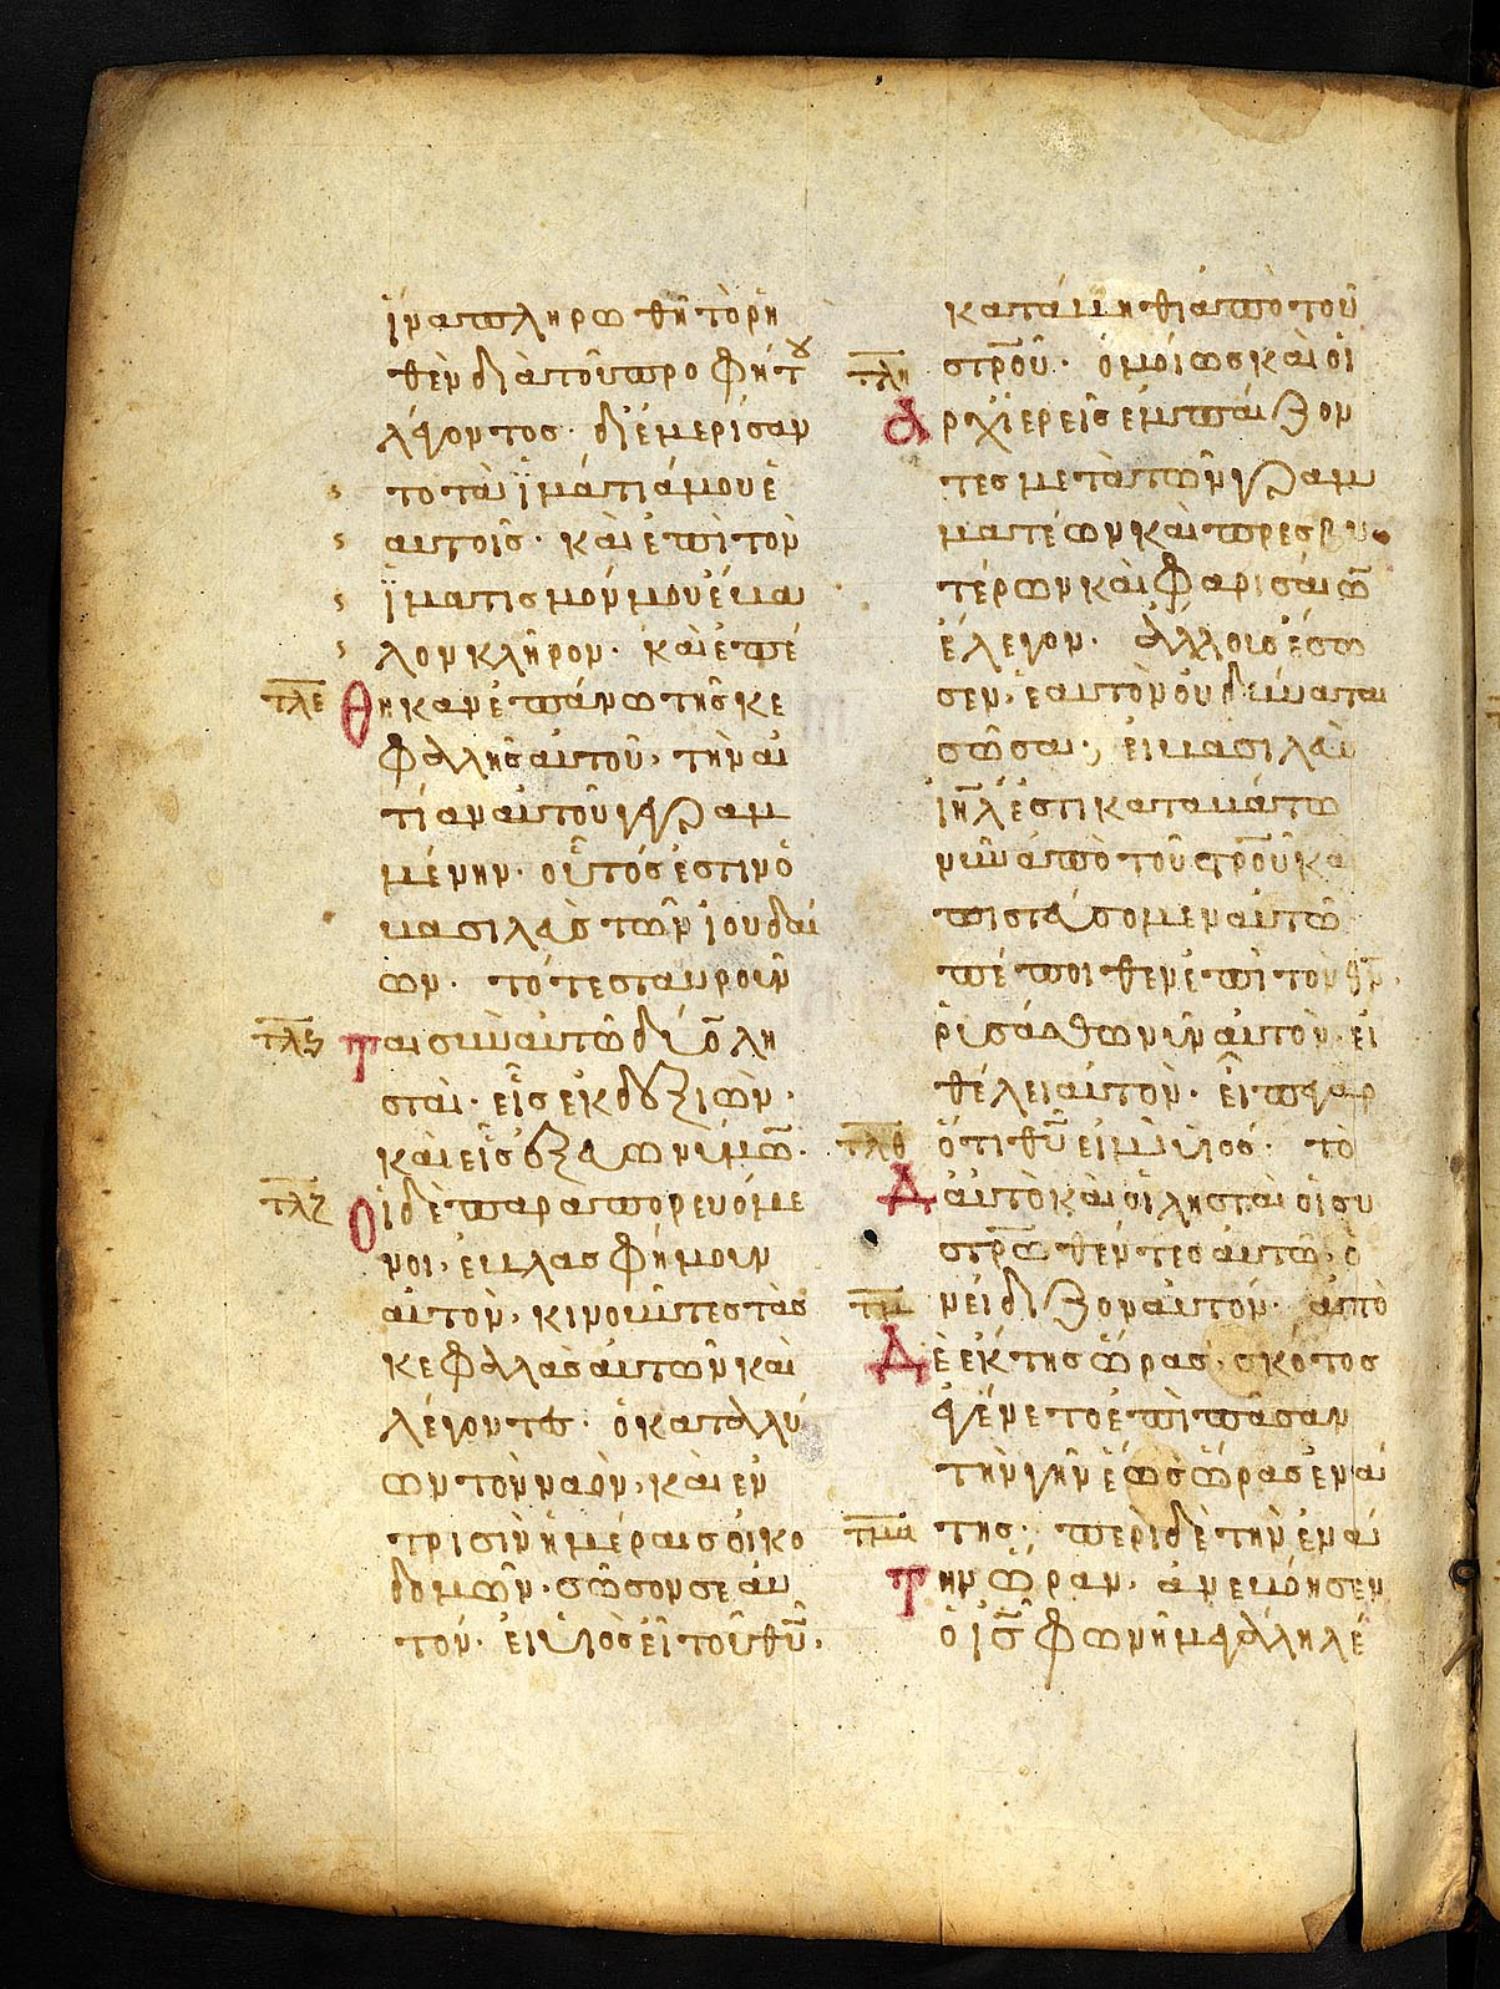 ἵνα πληρωθῆ τὸ ρη
θὲν διὰ τοῦ προφήτ
λέγοντος· διεμερίσαν
το τὰ ἱμάτιά μου ἑ
αυτοῖς· καὶ ἐπὶ τὸν
ἱματισμόν μου ἔβα
λον κλῆρον· καὶ ἐπέ
τλε Θηκαν ἐπάνω τῆς κε
φαλῆς αὐτοῦ, τὴν αἰ
τίαν αὐτοῦ γεγραμ
μένην· οὗτός ἐστιν ὁ
βασιλεὺς τῶν ἰουδαί
ων· τότε σταυροῦν
τλς Ται σὺν αὐτῶ δύο λη
σταί· εἷς ἐκ δεξιῶν·
καὶ εἷς ἐξ εὐωνύμω̅·
τλζ Οἱ δὲ παραπορευόμε
νοι, ἐβλασφήμουν
αὐτὸν, κινοῦντες τὰς
κεφαλὰς αὐτῶν καὶ
λέγοντες· ὁ καταλύ
ων τὸν ναὸν, καὶ ἐν
τρισὶν ἡμέραις οἰκο
δομῶν· σῶσον σεαυ
τόν· εἰ υἱὸς εἶ τοῦ θ̅υ̅,
κατάβηθι ἀπὸ τοῦ
τλη στρ̅ου̅· ὁμοίως καὶ οἱ
Ἀρχιερεῖς ἐμπαίζον
τες μετὰ τῶν γραμ
ματέων καὶ πρεσβυ
τέρων καὶ φαρισαίω̅
ἔλεγον· ἄλλους ἔσω
σεν, ἑαυτὸν οὐ δύναται
σῶσαι·, εἰ βασιλεὺ
ι̅η̅λ̅ ἐστι καταβάτω
νῦν ἀπὸ τοῦ στρ̅ου̅ κα
πιστεύσομεν αὐτῶ
πέποιθεν ἐπὶ τὸν θ̅ν̅,
ρυσάσθω νῦν αὐτὸν· εἰ
θέλει αὐτὸν· εἶπε γαρ
τλθ ὅτι θ̅υ̅ εἰμὶ υἱός· τὸ
Δ αὐτὸ καὶ οἱ λησταὶ οἱ συ
στρ̅ωθέντες αὐτῶ, ὀ
τμ νείδιζον αὐτόν· ἀπὸ
Δὲ ἕκτης ὥρας, σκότος
ἐγένετο ἐπὶ πᾶσαν
τὴν γῆν ἕως ὥρας ἐνάι
τμα της·, περὶ δὲ τὴν ἐνάι
Την ὥραν, ἀνεβόησεν
ὁ ι̅ς̅ φωνῆ μεγάλη λέ